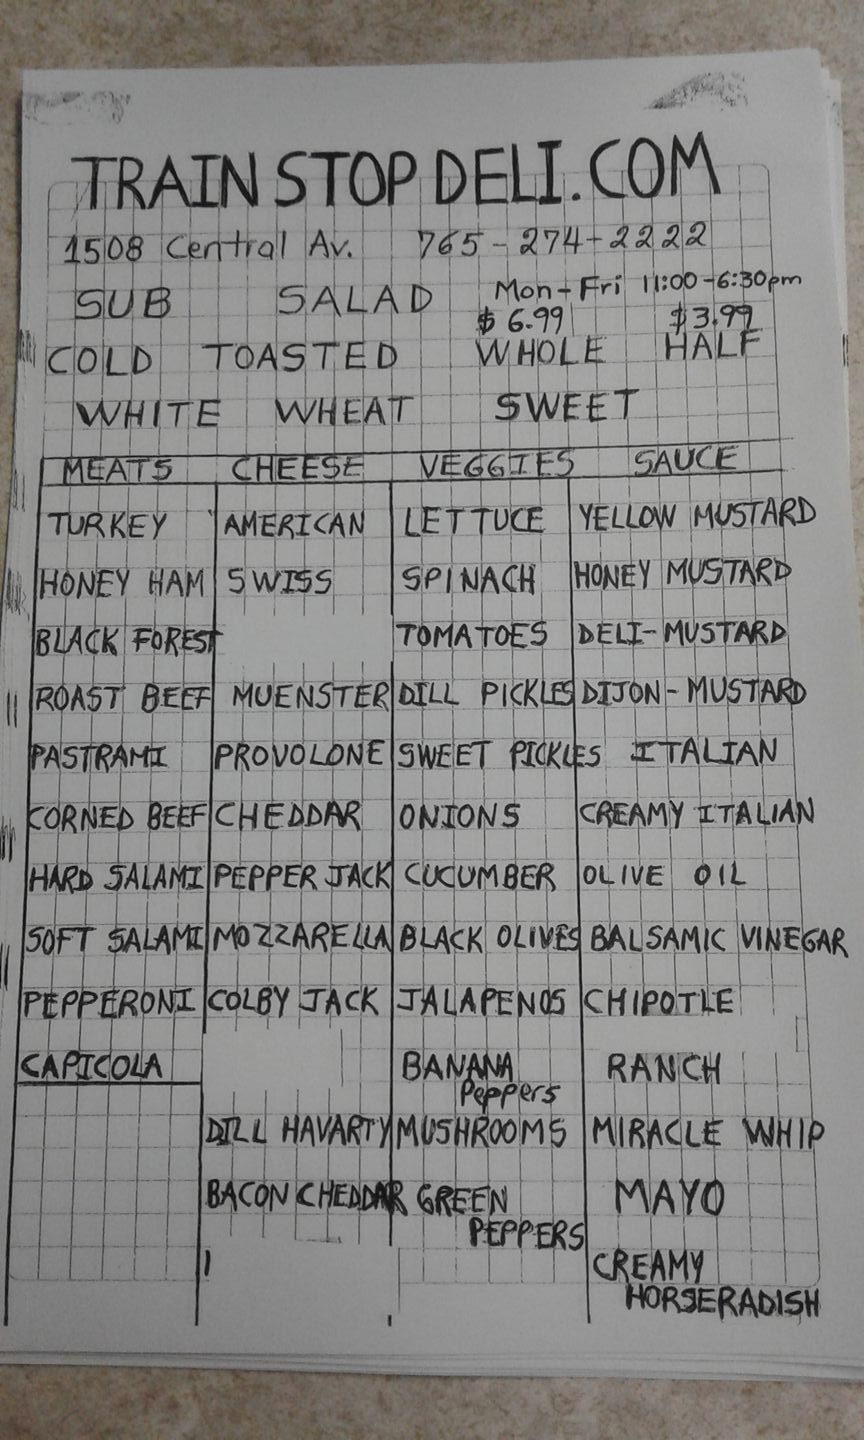 TRAIN STOP DELI.COM
1508 Central Av. 765-274-2222
SUB SALAD Mon-Fri 11:00-6:30pm
$6.99 $3.99
COLD TOASTED WHOLE HALF
WHITE WHEAT SWEET
MEATS CHEESE VEGGIES SAUCE
TURKEY AMERICAN LETTUCE YELLOW MUSTARD
HONEY HAM SWISS SPINACH HONEY MUSTARD
BLACK FOREST TOMATOES DELI-MUSTARD
ROAST BEEF MUENSTER DILL PICKLES DIJON-MUSTARD
PASTRAMI PROVOLONE SWEET PICKLES ITALIAN
CORNED BEEF CHEDDAR ONIONS CREAMY ITALIAN
HARD SALAMI PEPPER JACK CUCUMBER OLIVE OIL
SOFT SALAMI MOZZARELLA BLACK OLIVES BALSAMIC VINEGAR
PEPPERONI COLBY JACK JALAPENOS CHIPOTLE
CAPICOLA BANANA RANCH
Peppers
DILL HAVARTY MUSHROOMS MIRACLE WHIP
BACON CHEDDAR GREEN MAYO
PEPPERS
CREAMY
HORSERADISH